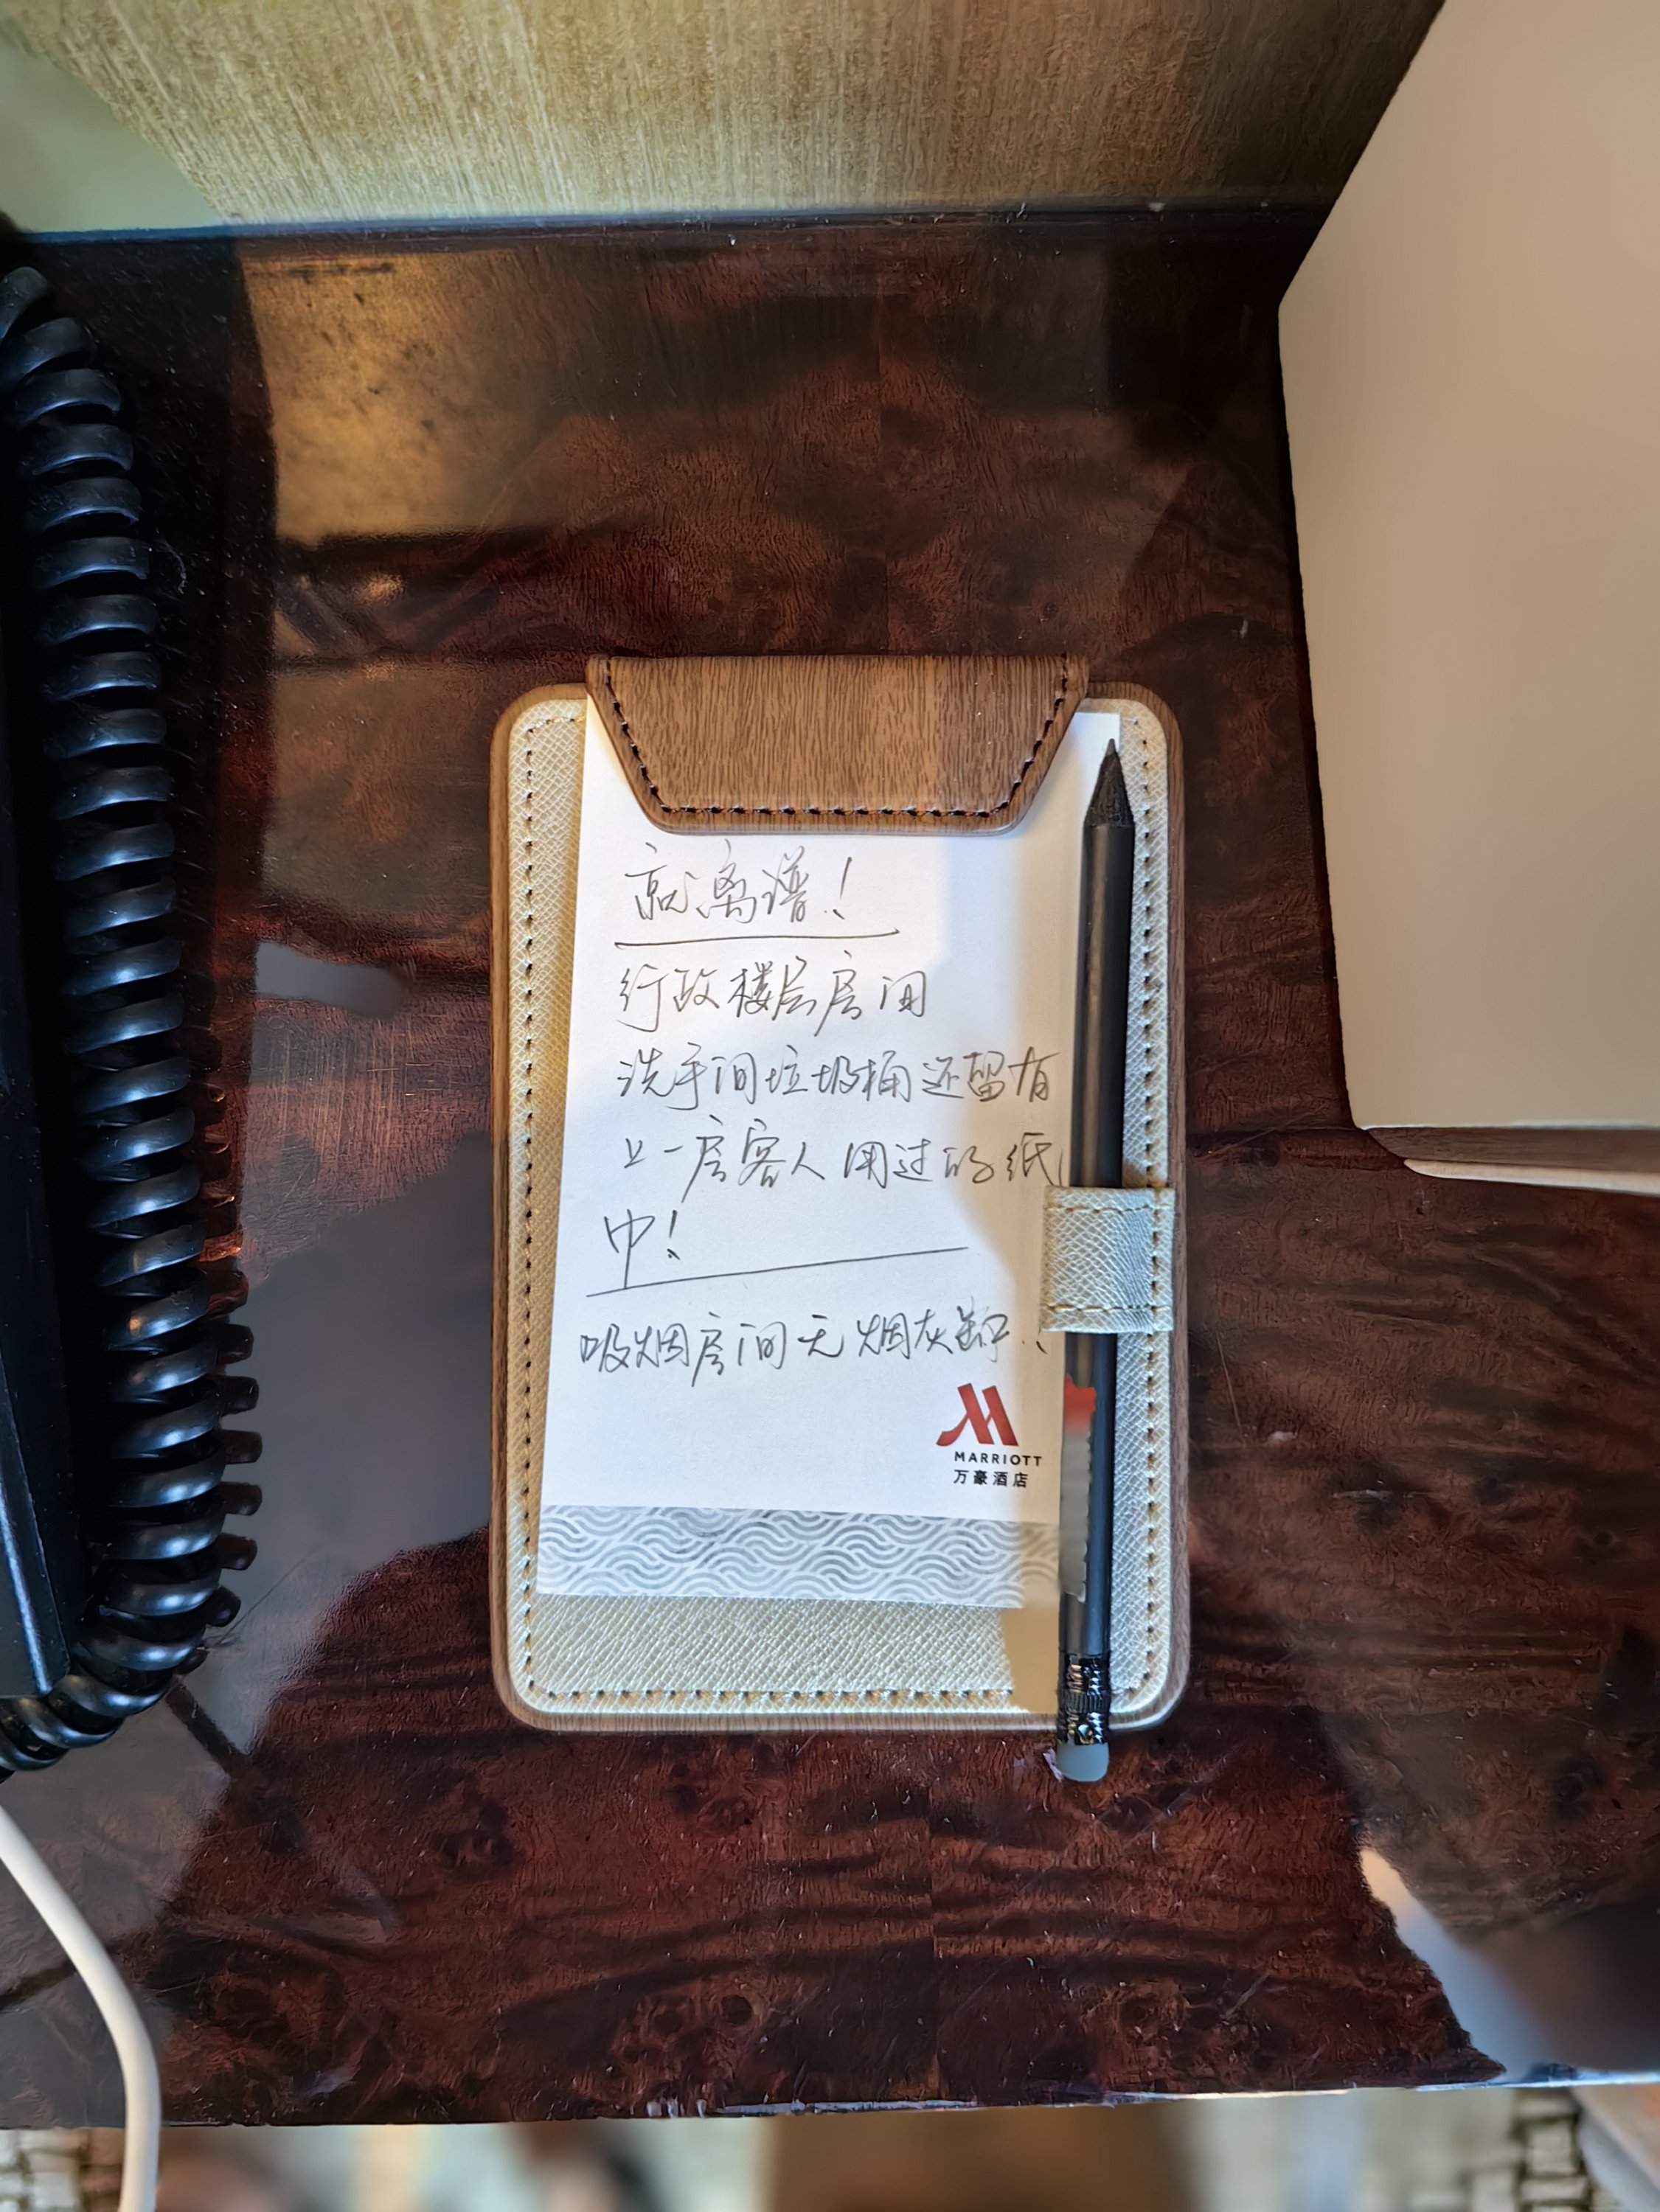 就离谱！
行政楼层房间
洗手间垃圾桶还留有
上一房客人用过的纸
巾！
吸烟房间无烟灰缸！
MARRIOTT
万豪酒店